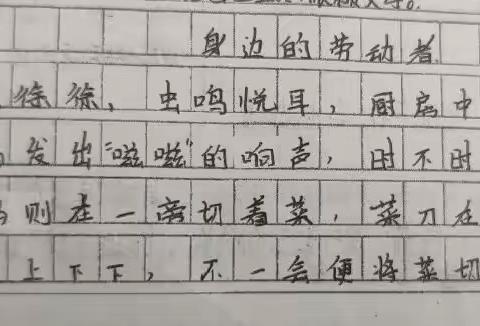 身边的劳动者
徐徐，虫鸣悦耳，厨房中
发出“嗞嗞”的响声，时不时
则在一旁切着菜，菜刀在
上下下，不一会便将菜切